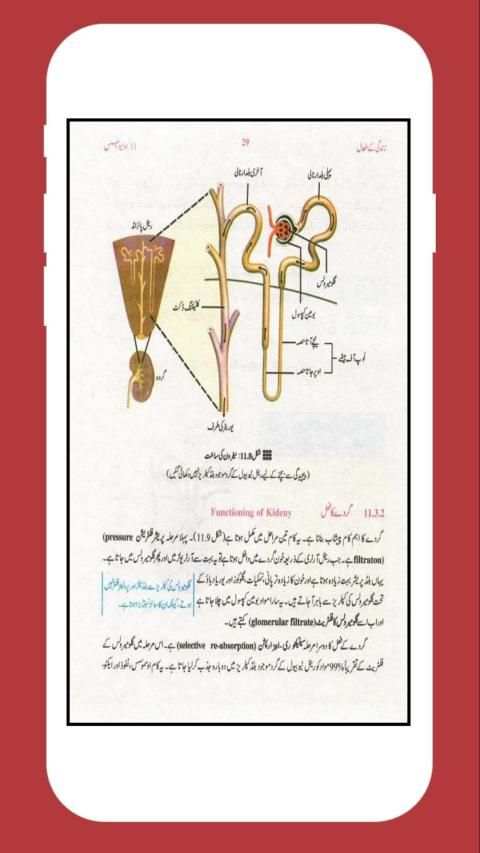 زندگی کے افعال
29
11/ ہومیوسٹیسس
آخری بلدار نالی
پہلی بلدار نالی
رینل پائرامڈ
گلومیرولس
کلیکٹنگ ڈکٹ
بومین کیپسول
نیچے آتا حصہ
لوپ آف ہینلے
اوپر جاتا حصہ
گردہ
یوریٹر کی طرف
شکل 11.8: نیفرون کی ساخت
(پیچیدگی سے بچنے کے لیے رینل ٹیوبیول کے گرد موجود بلڈ کیپلریز نہیں دکھائی گئیں)
11.3.2 گردے کا فعل Functioning of Kideny
گردے کا اہم کام پیشاب بنانا ہے۔ یہ کام تین مراحل میں مکمل ہوتا ہے (شکل 11.9)۔ پہلا مرحلہ پریشر فلٹریشن (pressure
filtraton) ہے۔ جب رینل آرٹری کے ذریعہ خون گردے میں داخل ہوتا ہے تو یہ بہت سے آرٹریولز میں اور پھر گلومیرولس میں جاتا ہے۔
یہاں بلڈ پریشر بہت زیادہ ہوتا ہے اور خون کا زیادہ تر پانی، نمکیات، گلوکوز اور یوریا دباؤ کے
تحت گلومیرولس کی کیپلریز سے باہر آ جاتے ہیں۔ یہ سارا مواد بومین کیپسول میں چلا جاتا ہے
اور اب اسے گلومیرولس کا فلٹریٹ (glomerular filtrate) کہتے ہیں۔
گلومیرولس کی کیپلریز سے بلڈ سیلز اور پروٹینز فلٹر نہیں
ہوتے، کیونکہ ان کا سائز نسبتاً بڑا ہوتا ہے۔
گردے کے فعل کا دوسرا مرحلہ سلیکٹو ری-ابزارپشن (selective re-absorption) ہے۔ اس مرحلہ میں گلومیرولس کے
فلٹریٹ کے تقریباً %99 مواد کو رینل ٹیوبیول کے گرد موجود بلڈ کیپلریز میں دوبارہ جذب کر لیا جاتا ہے۔ یہ کام اوسموسس، نفوذ اور ایکٹو